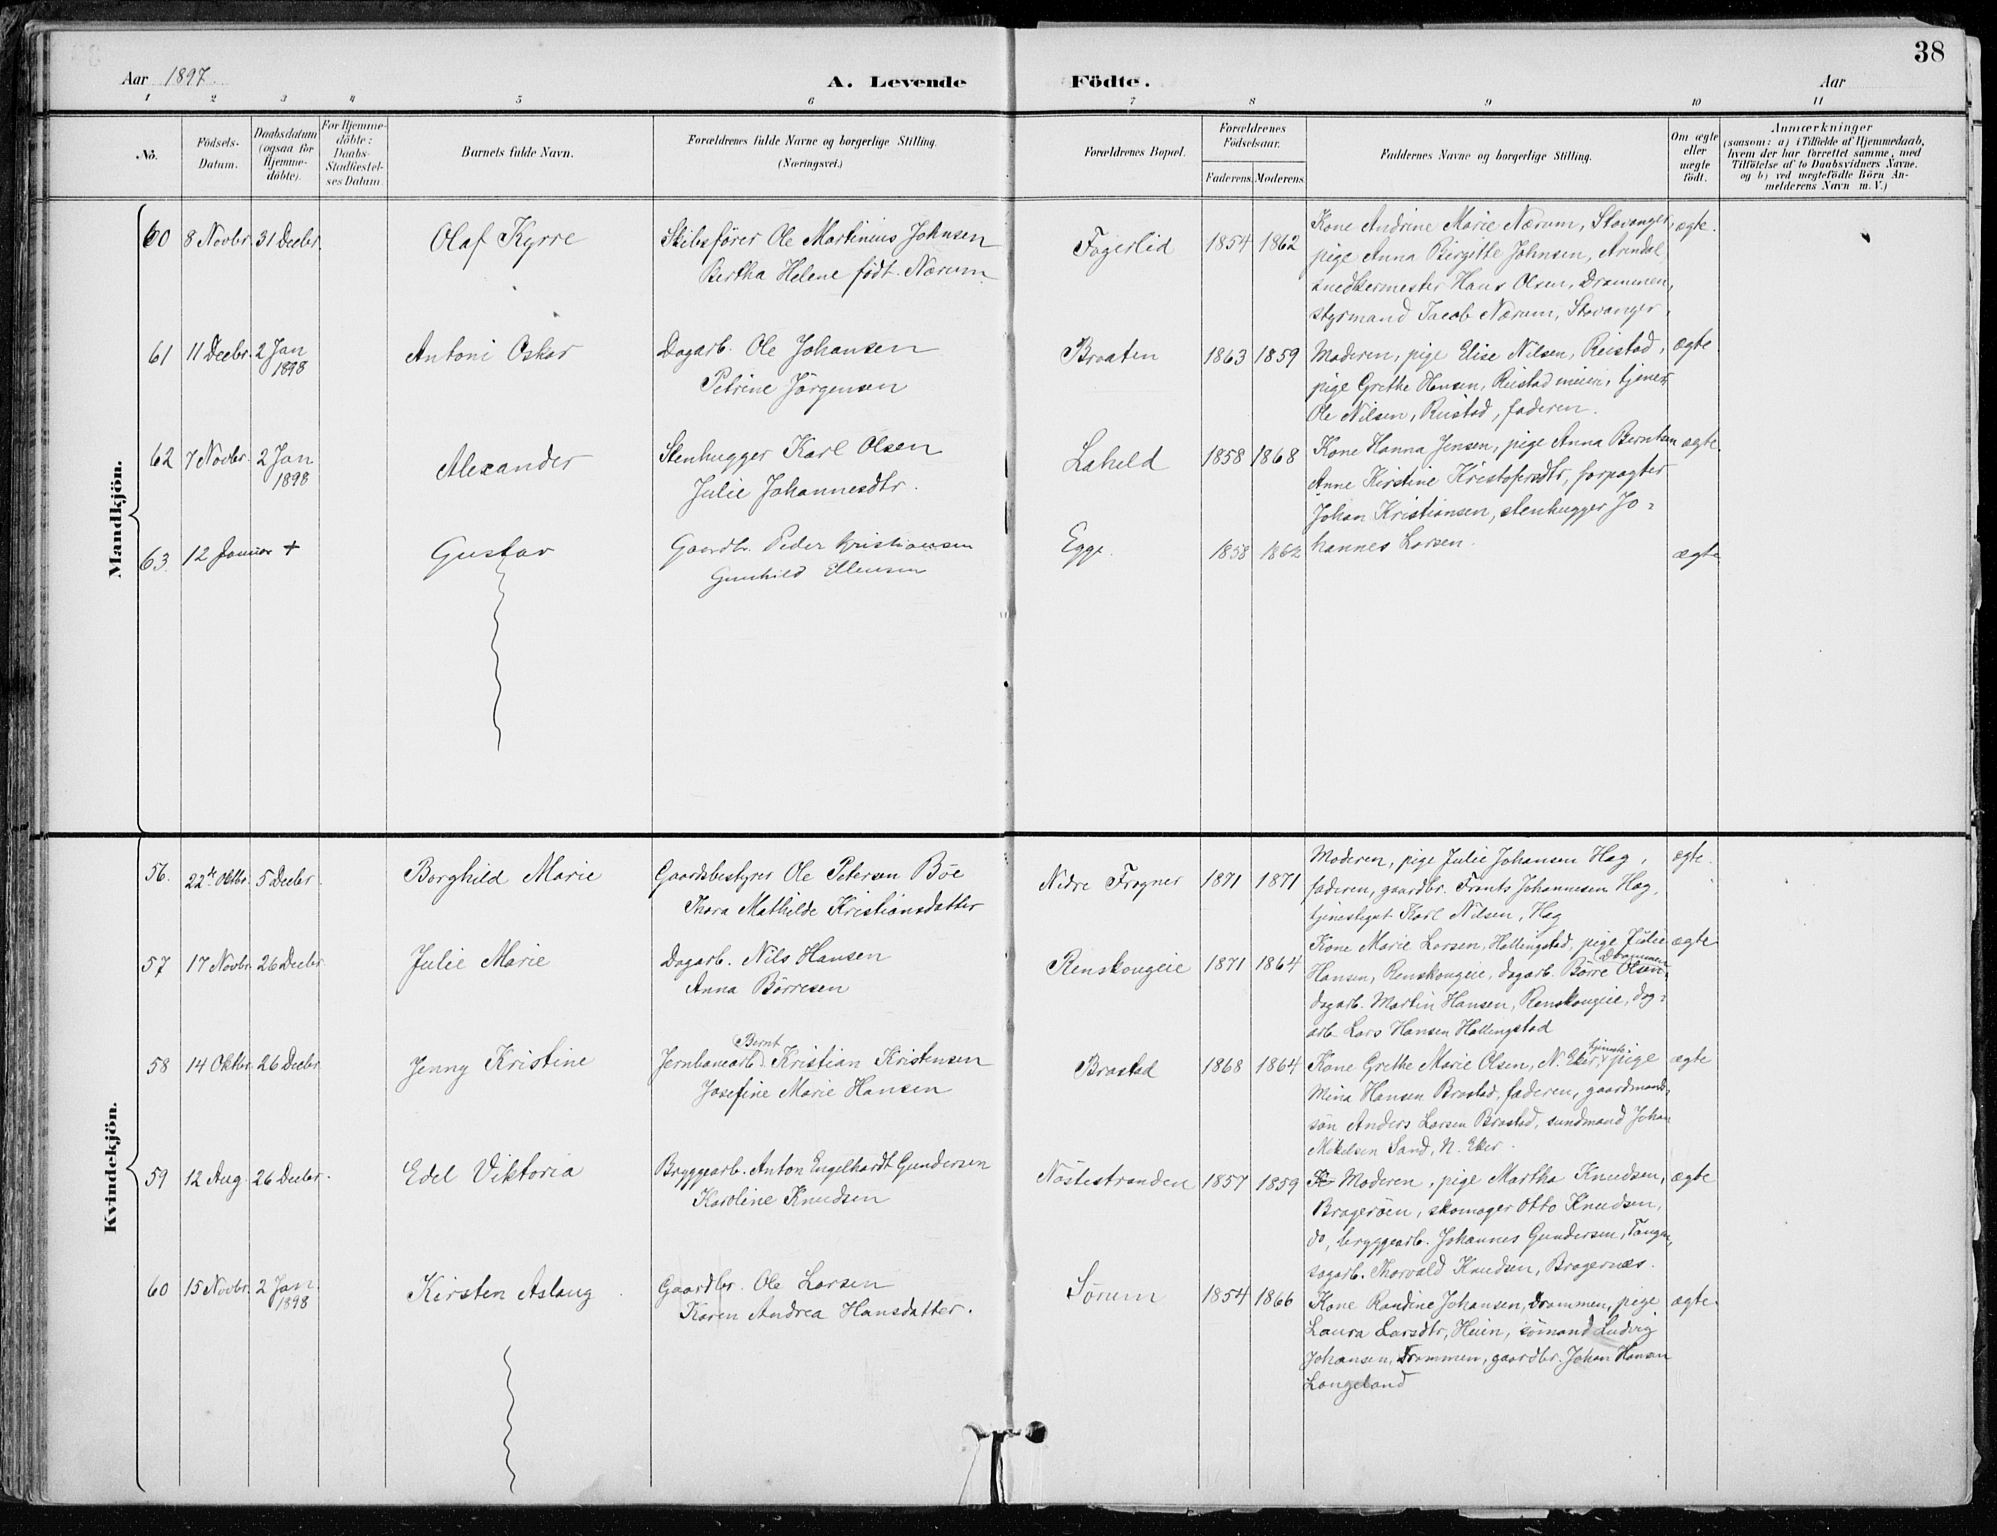 38
Aar 1897. A. Levende Födte. Aar
1 2 3 4 5 6 7 8 9 10 11
No.
Födsels-
Datum.
Daabsdatum
(ogsaa for
Hjemme-
döbte).
For Hjemme-
döbte:
Daabs-
Stadfæstel-
ses Datum
Barnets fulde Navn.
Forældrenes fulde Navne og borgerlige Stilling.
(Næringsvei.)
Forældrenes Bopæl.
Forældrenes
Födselsaar.
Faderens. Moderens.
Faddernes Navne og borgerlige Stilling.
Om ægte
eller
uægte
födt.
Anmærkninger
(saasom: a) i Tilfælde af Hjemmedaab,
hvem der har forrettet samme, med
Tilföielse af to Daabsvidners Navne.
og b) ved uægtefödte Börn An-
melderens Navn m. V.)
Mandkjön.
60 8 Novbr. 31 Decbr. Olaf Kyrre
Skibsfører Ole Martinius Johnsen
Bertha Helene født Nærum
Fagerlid 1854 1862
Kone Andrine Marie Nærum, Stavanger,
pige Anna Birgitte Johnsen, Arendal,
snedkermester Hans Olsen, Drammen,
styrmand Jacob Nærum, Stavanger.
ægte.
61 11 Decbr. 2 Jan
1898
Antoni Oskar
Dagarb. Ole Johansen
Petrine Jørgensen
Braaten 1863 1859
Moderen, pige Elise Nilsen, Reistad,
pige Grethe Hansen, Reistad meieri, tjener
Ole Nilsen, Reistad, faderen.
ægte.
62 7 Novbr. 2 Jan
1898
Alexander
Stenhugger Karl Olsen
Julie Johannesdtr.
Laheld 1858 1868
Kone Hanna Jensen, pige Anna Berntsen
Anne Kirstine Kristofersdtr, forpagter
Johan Kristiansen, stenhugger Jo-
hannes Larsen.
ægte.
63 12 Januar + Gustav
Gaardbr. Peder Kristiansen
Gunhild Ellensen
Egge. 1858 1862
ægte
Kvindekjön.
56. 22de Oktbr. 5 Decbr. Borghild Marie
Gaardsbestyrer Ole Petersen Bøe
Thora Mathilde Kristiansdatter
Nedre Frogner 1871 1871
Moderen, pige Julie Johansen Hag,
faderen, gaardbr. Frants Johannesen Hag,
tjenestegut Karl Nilsen, Hag
ægte.
57 17 Novbr. 26 Decbr. Julie Marie
Dagarb. Nils Hansen
Anna Børresen
Renskougeie 1871 1864
Kone Marie Larsen, Hallingstad, pige Julie
Hansen, Renskougeie, dagarb. Børre Olsen, (Drammen
dagarb. Martin Hansen, Renskougeie, dag-
arb. Lars Hansen Hallingstad
ægte
58 14 Oktbr. 26 Decbr. Jenny Kristine
Jernbanearb. Bernt Kristian Kristensen
Josefine Marie Hansen
Brastad 1868 1864
Kone Grethe Marie Olsen, N. Eker, tjeneste pige
Mina Hansen Brastad, faderen, gaardmands
søn Anders Larsen Brastad, sundmand Johan
Mikelsen Sand, N. Eker.
ægte
59 12 Aug. 26 Decbr. Edel Viktoria
Bryggearb. Anton Engelhardt Gundersen
Karoline Knudsen
Nøstestranden 1857 1859
Moderen, pige Martha Knudsen,
Bragerøen, skomager Otto Knudsen,
do, bryggearb. Johannes Gundersen, Tangen,
sagarb. Thorvald Knudsen, Bragernæs.
ægte
60 15 Novbr. 2 Jan.
1898
Kirsten Aslaug
Gaardbr. Ole Larsen
Karen Andrea Hansdatter.
Sørum 1854 1866
Kone Randine Johansen, Drammen, pige
Laura Larsdtr, Heien, sømand Ludvig
Johansen, Drammen, gaardbr. Johan Hansen
Langeland
ægte.